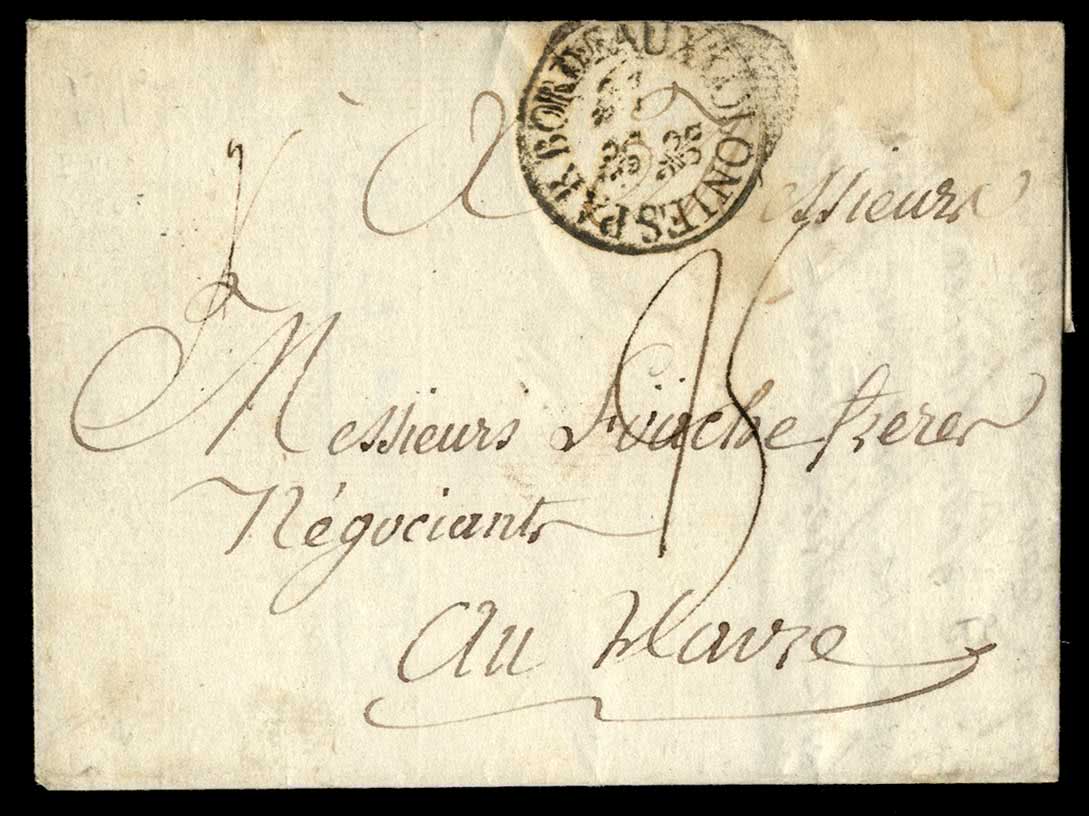 COLONIES PAR BORDEAUX
A Messieurs
Messieurs Foäche frères
Négociants
Au Havre